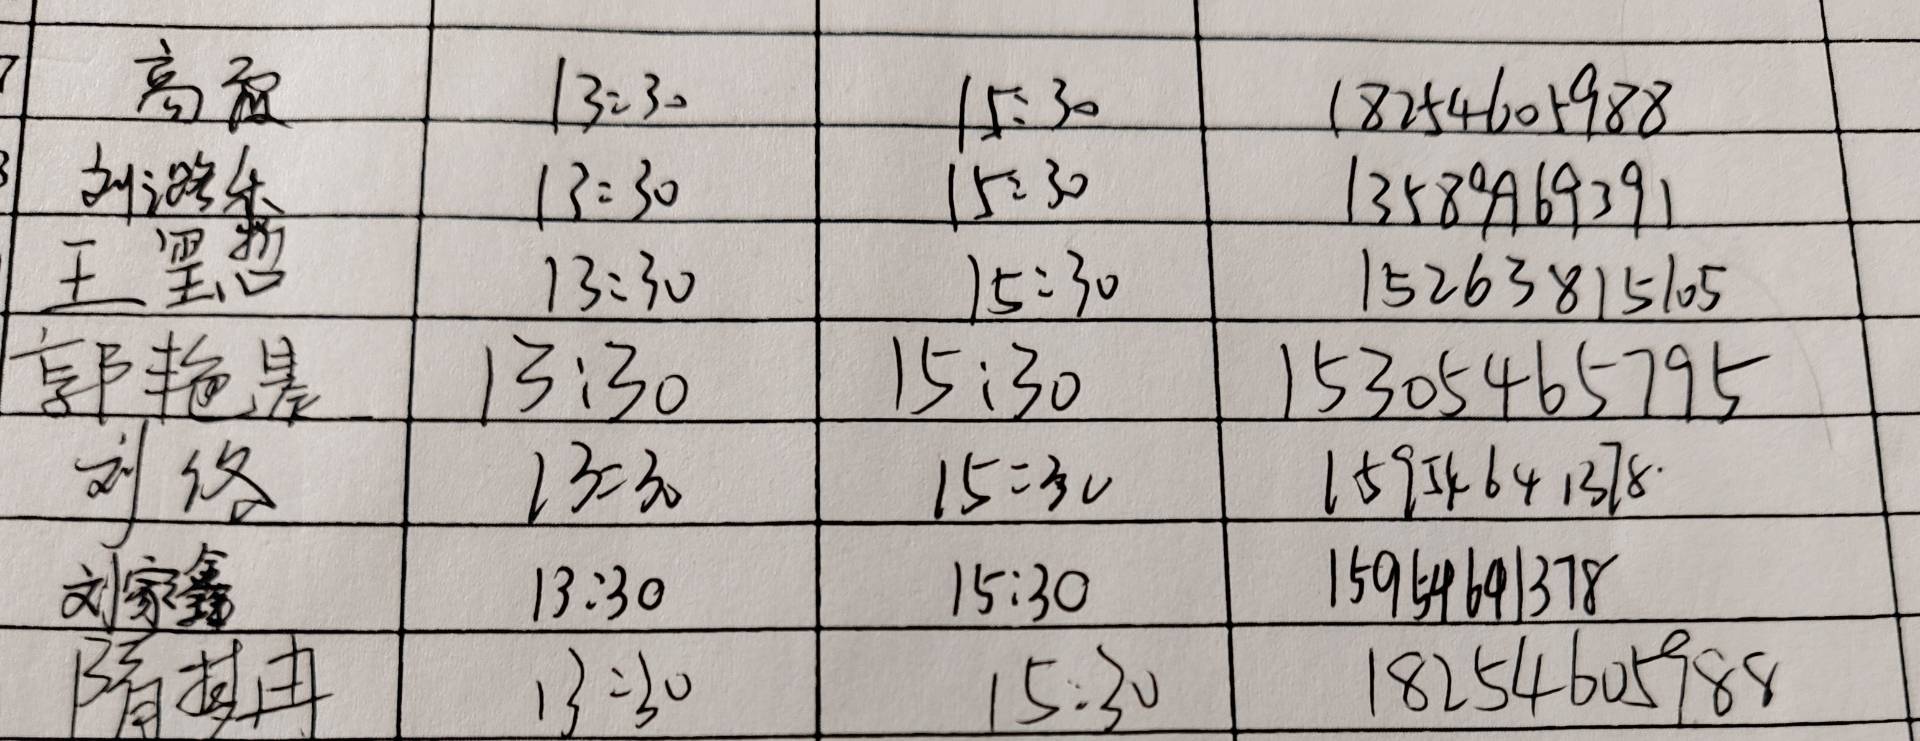 7 高 13:30 15:30 18254605988
刘潞乐 13:30 15:30 13589969391
王墨哲 13:30 15:30 15263815105
郭艳景 13:30 15:30 15305465795
刘 13:30 15:30 15954641378
刘家鑫 13:30 15:30 15954641378
隋梦冉 13:30 15:30 18254605988